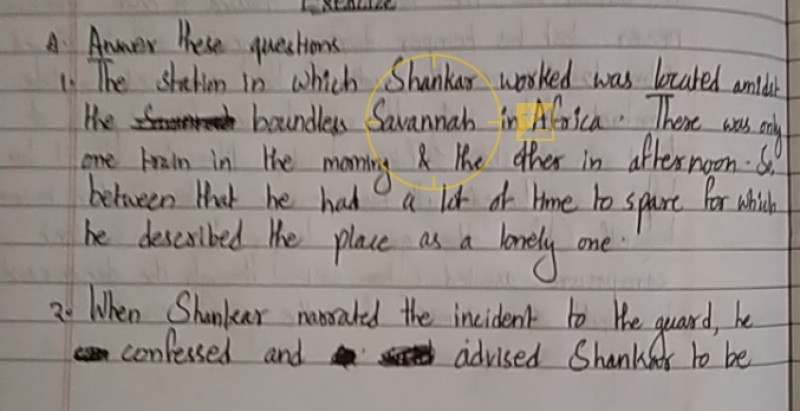 Exercise
A. Answer these questions
1. The station in which Shankar worked was located amidst
the boundless Savannah in Africa. There was only
one train in the morning & the other in afternoon. So,
between that he had a lot of time to spare for which
he described the place as a lonely one.
2. When Shankar narrated the incident to the guard, he
confessed and advised Shankar to be